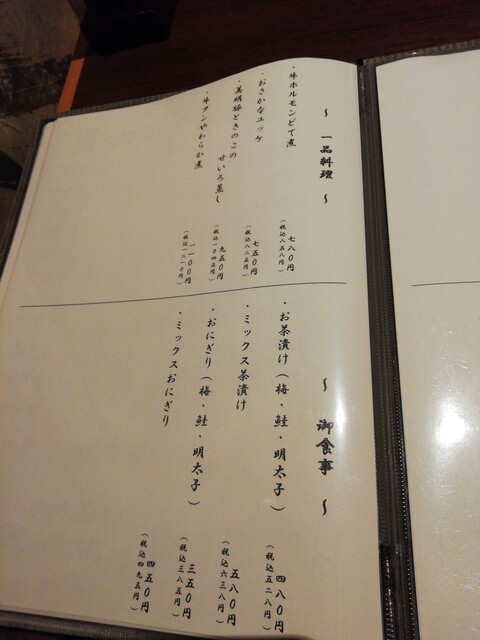 ～ 一品料理 ～
・牛ホルモンどて煮
七八〇円
（税込八五八円）
・おさかなユッケ
七五〇円
（税込八二五円）
・美明豚ときのこの
せいろ蒸し
九五〇円
（税込一〇四五円）
・牛タンやわらか煮
一一〇〇円
（税込一二一〇円）
～ 御食事 ～
・お茶漬け（梅・鮭・明太子）
四八〇円
（税込五二八円）
・ミックス茶漬け
五八〇円
（税込六三八円）
・おにぎり（梅・鮭・明太子）
三五〇円
（税込三八五円）
・ミックスおにぎり
四五〇円
（税込四九五円）